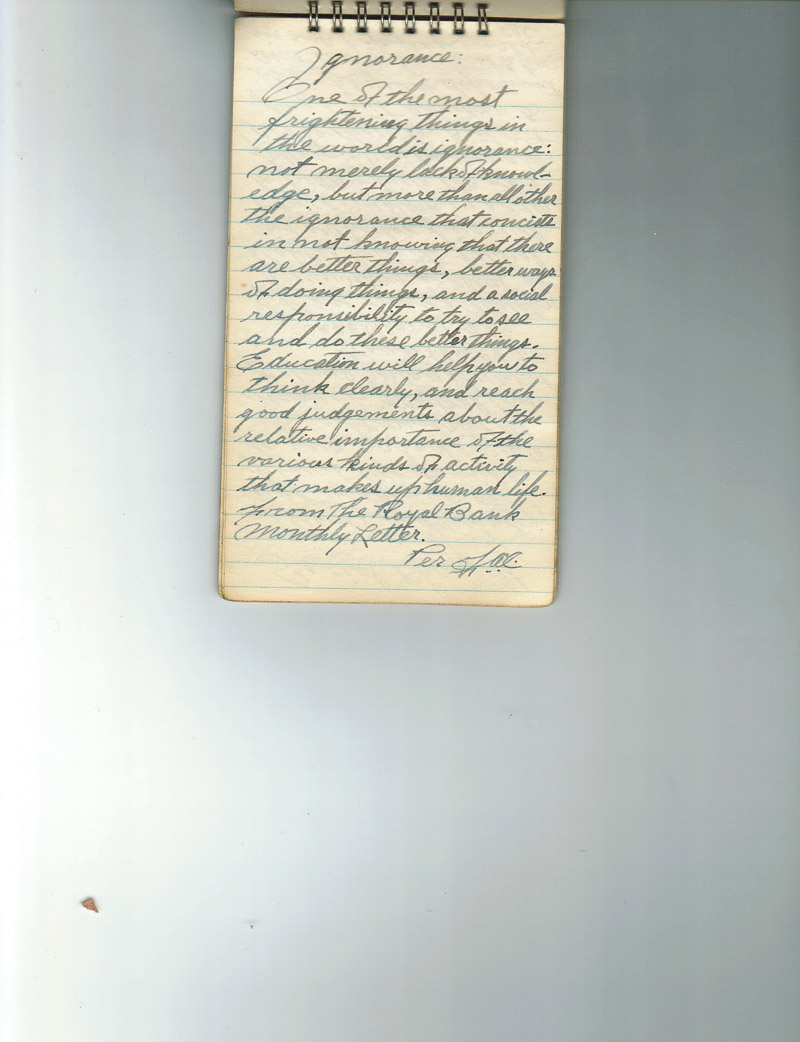 Ignorance:
One of the most
frightening things in
the world is ignorance:
not merely lack of knowl-
edge, but more than all other
the ignorance that concists
in not knowing that there
are better things, better ways
of doing things, and a social
responsibility to try to see
and do these better things.
Education will help you to
think clearly, and reach
good judgements about the
relative importance of the
various kinds of activity
that makes up human life.
From The Royal Bank
Monthly Letter.
Per